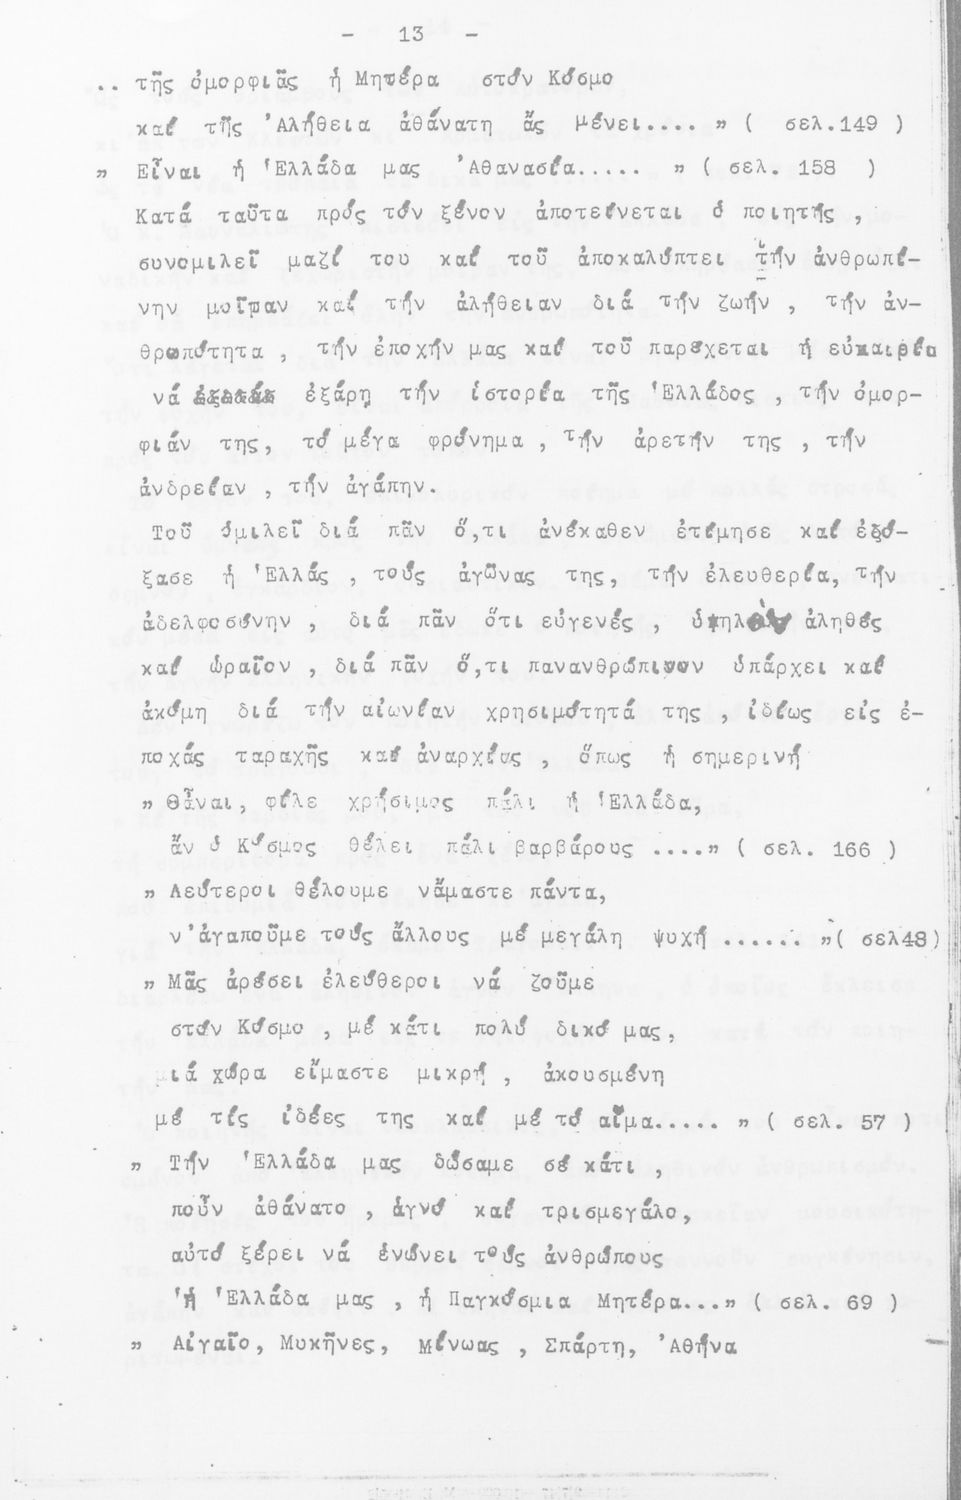 - 13 -
.. τῆς ὀμορφιᾶς ἡ Μητέρα στόν Κόσμο
καί τῆς 'Αλήθεια ἀθάνατη ἄς μένει.... " ( σελ.149 )
" Εἶναι ἡ 'Ελλάδα μας 'Αθανασία..... " ( σελ. 158 )
Κατά ταῦτα πρός τόν ξένον ἀποτείνεται ὁ ποιητής ,
συνομιλεῖ μαζί του καί τοῦ ἀποκαλύπτει τήν ἀνθρωπί-
νην μοῖραν καί τήν ἀλήθειαν διά τήν ζωήν , τήν ἀν-
θρωπότητα , τήν ἐποχήν μας καί τοῦ παρέχεται ἡ εὐκαιρία
νά ἐξάρῃ τήν ἱστορία τῆς 'Ελλάδος , τήν ὀμορ-
φιάν της, τό μέγα φρόνημα , τήν ἀρετήν της , τήν
ἀνδρείαν , τήν ἀγάπην.
Τοῦ ὁμιλεῖ διά πᾶν ὅ,τι ἀνέκαθεν ἐτίμησε καί ἐδό-
ξασε ἡ 'Ελλάς , τούς ἀγῶνας της, τήν ἐλευθερία, τήν
ἀδελφοσύνην , διά πᾶν ὅτι εὐγενές , ὑψηλόν ἀληθές
καί ὡραῖον , διά πᾶν ὅ,τι πανανθρώπινον ὑπάρχει καί
ἀκόμη διά τήν αἰωνίαν χρησιμότητά της , ἰδίως εἰς ἐ-
ποχάς ταραχῆς καί ἀναρχίας , ὅπως ἡ σημερινή
" Θἆναι, φίλε χρήσιμος πάλι ἡ 'Ελλάδα,
ἄν ὁ Κόσμος θέλει πάλι βαρβάρους ...." ( σελ. 166 )
" Λεύτεροι θέλουμε νἄμαστε πάντα,
ν'ἀγαποῦμε τούς ἄλλους μέ μεγάλη ψυχή ...... "( σελ48)
" Μᾶς ἀρέσει ἐλεύθεροι νά ζοῦμε
στόν Κόσμο , μέ κάτι πολύ δικό μας,
μιά χώρα εἴμαστε μικρή , ἀκουσμένη
μέ τίς ἰδέες της καί μέ τό αἷμα..... " ( σελ. 57 )
" Τήν 'Ελλάδα μας δώσαμε σέ κάτι ,
ποὖν ἀθάνατο , ἁγνό καί τρισμεγάλο,
αὐτό ξέρει νά ἑνώνει τούς ἀνθρώπους
'ἡ 'Ελλάδα μας , ἡ Παγκόσμια Μητέρα..." ( σελ. 69 )
" Αἰγαῖο, Μυκῆνες, Μίνωας , Σπάρτη, 'Αθήνα